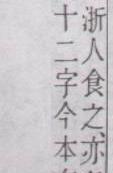 浙人食之亦
十二字今本